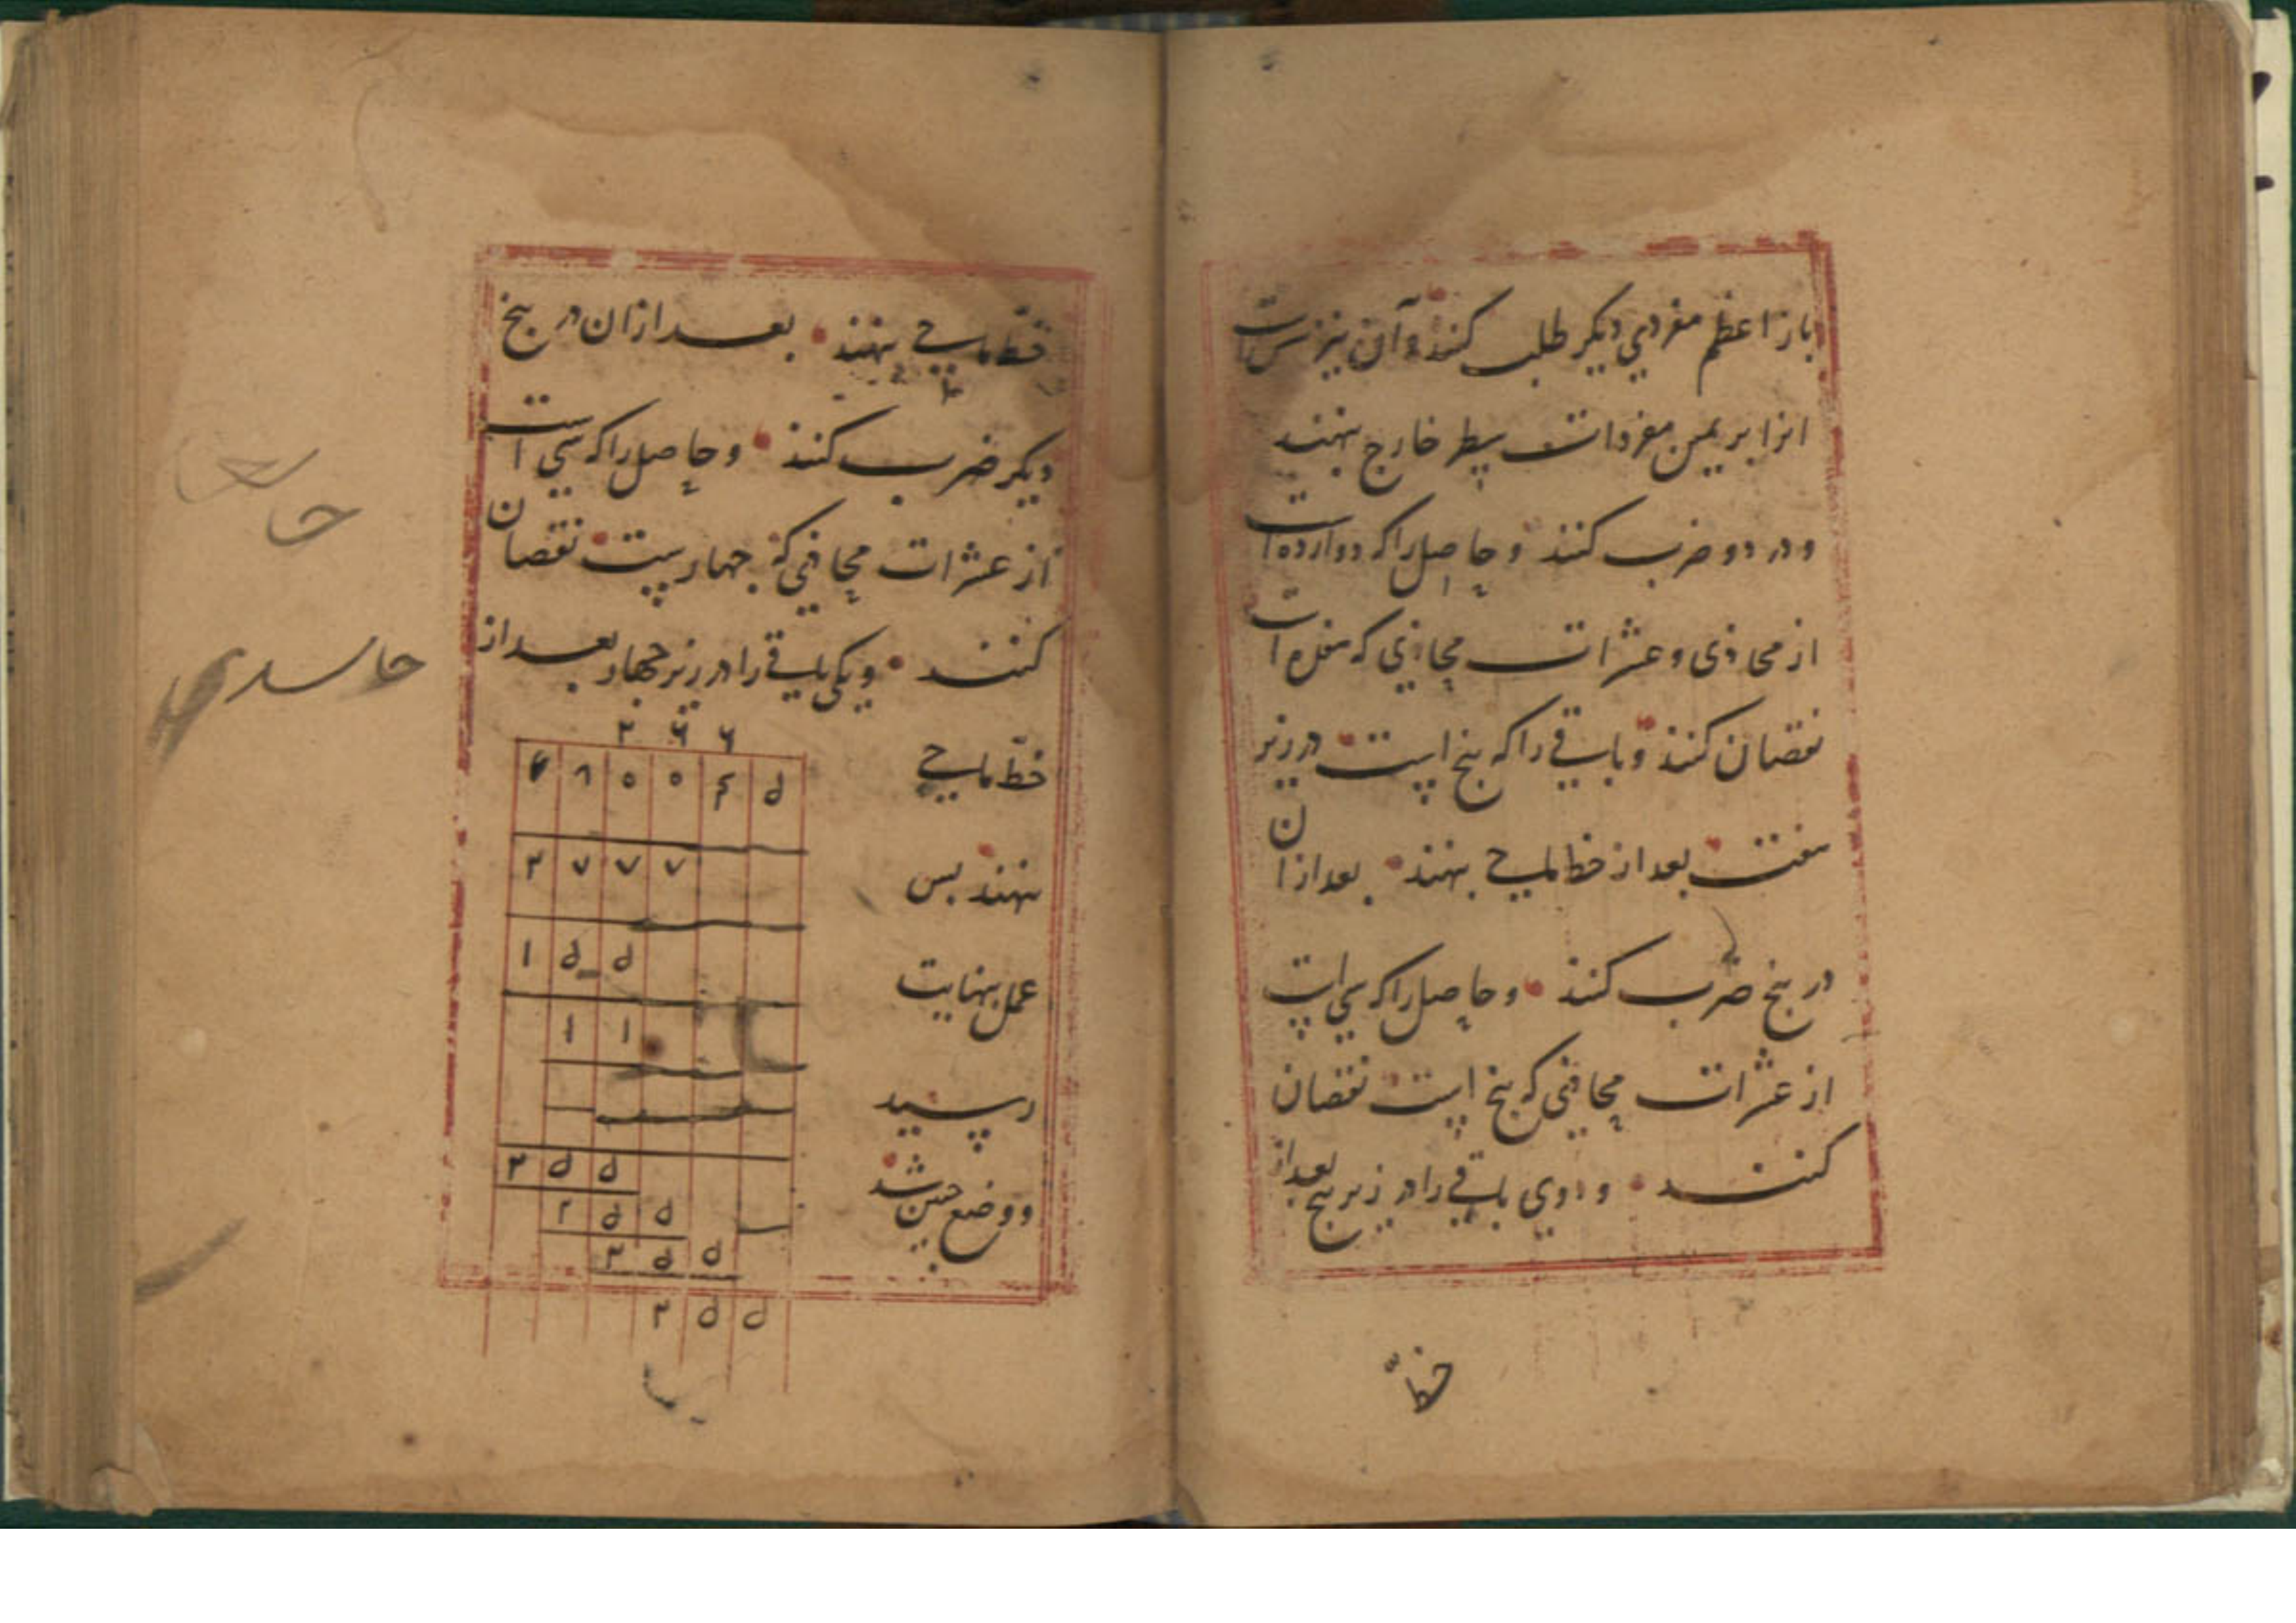 باز اعظم مفردي ديكر طلب كنند و آن نيز شش است
انرا بر يمين مفردات سطر خارج نهند
و در دو ضرب كنند و حاصل را كه دوازده است
از محاذى و عشرات محاذي كه هفده است
نقصان كنند و باقے را كه پنج است در زير
هفت بعد از خط ماحے بنهند بعد از ان
در پنج ضرب كنند و حاصل را كه سي است
از عشرات محاذي كه پنج است نقصان
كنند و دوي باقے را در زير پنج بعد از
خطّ
خطّ ماحے بنهند بعد از ان در پنج
ديكر ضرب كنند و حاصل را كه سي است
از عشرات محاذي كه چهارست نقصان
كنند و يكي باقے را در زير چهار بعد از
خطّ ماحے
بنهند پس
عمل بنهايت
رسيد
و وضع چنين شد
۲ ۶ ۶
۸ ۰ ۰ ۴ ۵
۲ ۷ ۷ ۷
۱ ۵ ۵
۱ ۱
۲ ۵ ۵
۲ ۵ ۵
۲ ۵ ۵
۲ ۵ ۵